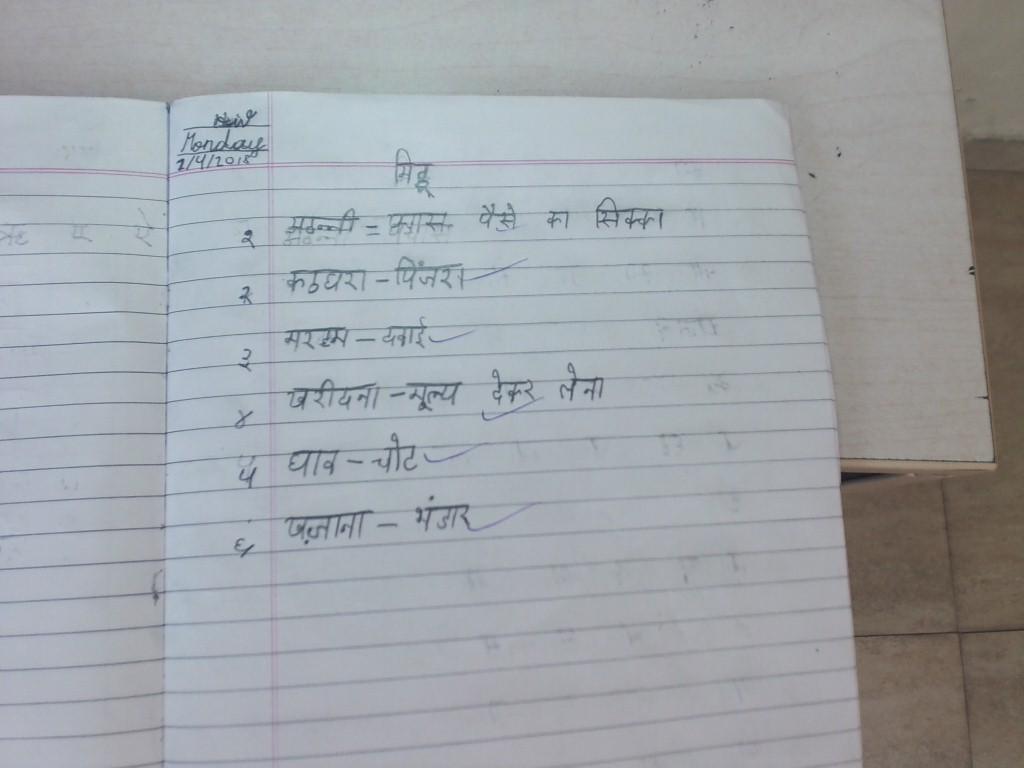 Monday
2/4/2018
मिट्ठू
२ = पैसे का सिक्का
२ कठघरा - पिंजरा
३ मरहम - दवाई
४ खरीदना - मूल्य देकर लेना
५ घाव - चोट
६ खज़ाना - भंडार